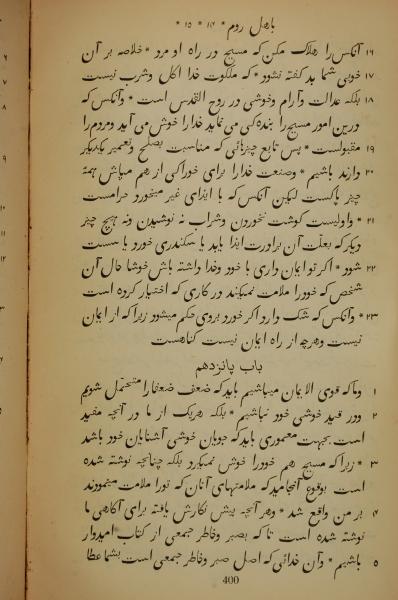 باهل روم * ۱۴ * ۱۵ *
۱۶ آنکس را هلاک مکن که مسیح در راه او مرد * خلاصه بر آن
۱۷ خوبی شما بد گفته نشود * که ملکوت خدا اکل وشرب نیست
۱۸ بلکه عدالت وآرام وخوشی در روح القدس است * وآنکس که
درین امور مسیح را بندگی می نماید خدارا خوش می آید ومردم را
۱۹ مقبولست * پس تابع چیزهائی که مناسبت بصلح وتعمیر یکدیگر
۲۰ دارند باشیم * وصنعت خدارا برای خوراکی از هم مپاش همهٔ
چیز پاکست لیکن آنکس که با ایذای غیر میخورد حرامست
۲۱ * واولیست گوشت نخوردن وشراب نه نوشیدن ونه هیچ چیز
دیگر که بعلت آن برادرت ایذا یابد یا سکندری خورد یا سست
۲۲ شود * اکر تو ایمان داری با خود وخدا داشته باش خوشا حال آن
شخص که خودرا ملامت نمیکند در کاری که اختیار کرده است
۲۳ * وآنکس که شک دارد اکر خورد بروی حکم میشود زیرا که از ایمان
نیست وهرچه از راه ایمان نیست کناهست
باب پانزدهم
۱ وما که قوی الایمان میباشیم باید که ضعف ضعفارا متحمل شویم
۲ ودر قید خوشی خود نباشیم * بلکه هریک از ما در آنچه مفید
است بجهت معموری باید که جویان خوشی آشنایان خود باشد
۳ * زیرا که مسیح هم خودرا خوش نمیکرد بلکه چنانچه نوشته شده
است بوقوع انجامید که ملامتهای آنان که تورا ملامت مینمودند
۴ بر من واقع شد * وهر آنچه پیش نکارش یافته برای آکاهی ما
نوشته شده است تا که بصبر وخاطر جمعی از کتاب امیدوار
۵ باشیم * وآن خدائی که اصل صبر وخاطر جمعی است بشما عطا
400